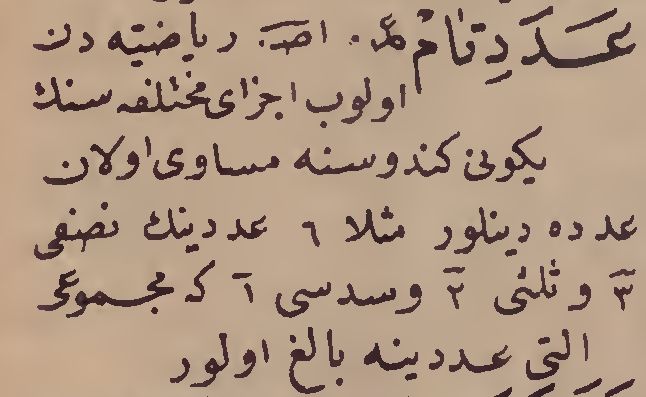 عَدَدِ تَامْ عر. اصـ. رياضيته دن
اولوب اجزاى مختلفه سنك
يكونى كندوسنه مساوى اولان
عدده دينلور مثلا ٦ عددينك نصفى
٣ و ثلثى ٢ وسدسى ١ كه مجموعى
التى عددينه بالغ اولور